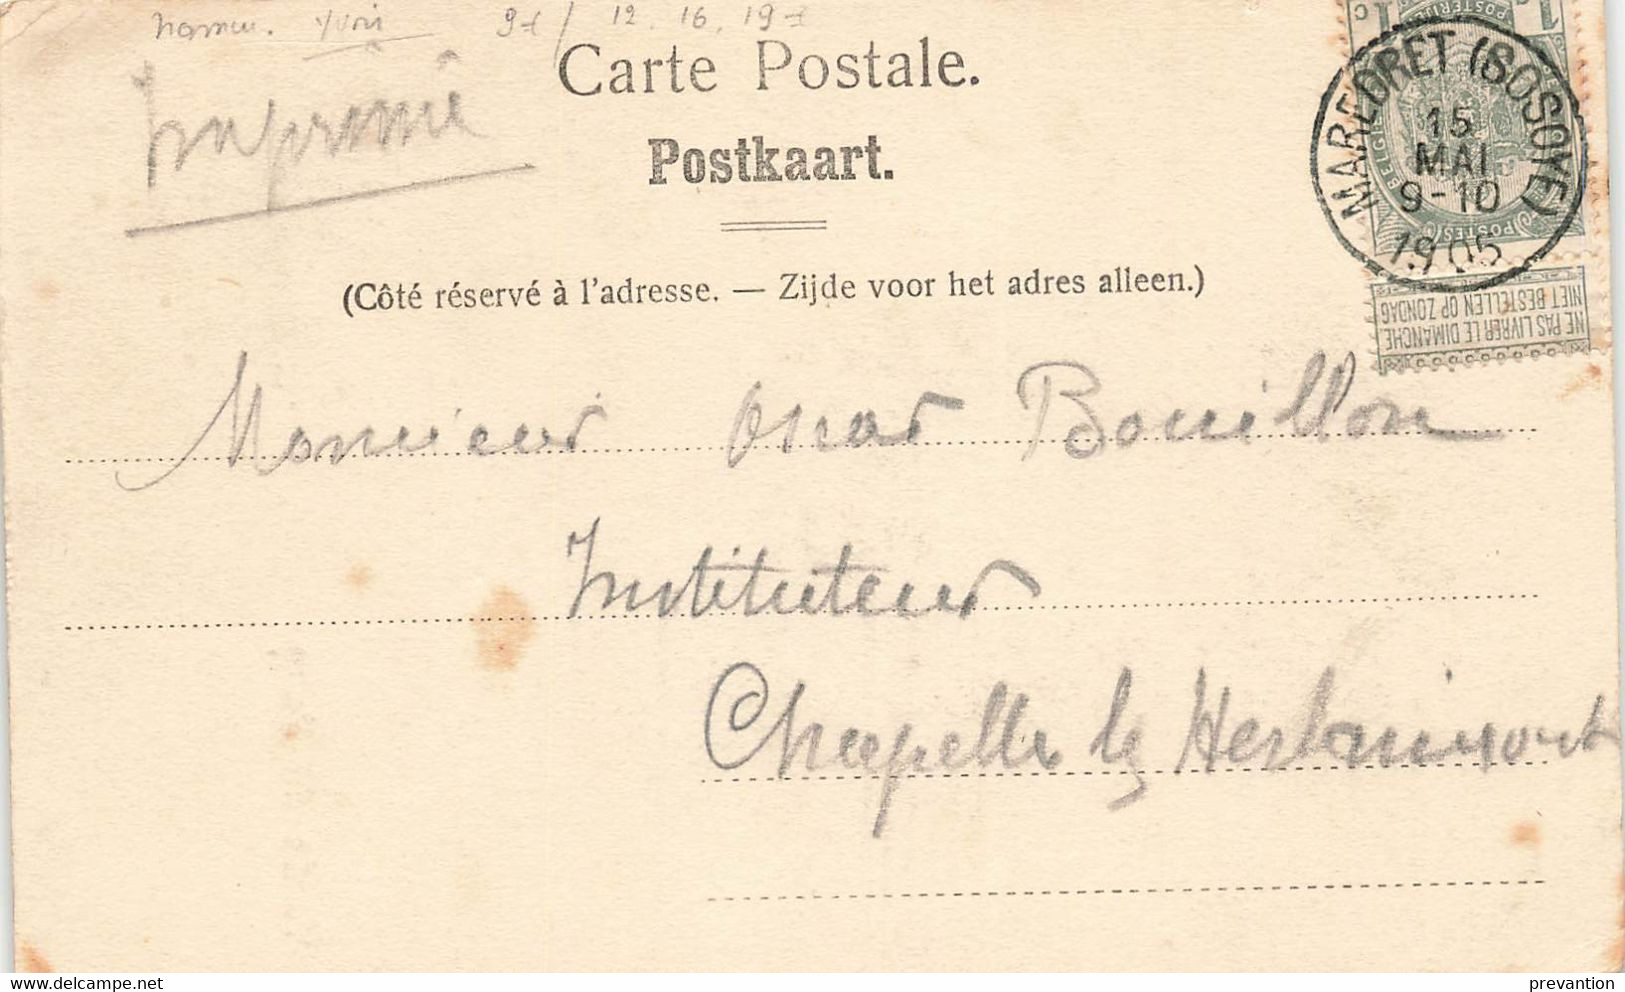 Namur. Yvoir 9-/ 12. 16. 19-
Carte Postale.
Imprimé
Postkaart.
(Côté réservé à l'adresse. — Zijde voor het adres alleen.)
MAREDRET (SOSOYE)
15
MAI
9-10
1905
BELGIQUE
POSTES
POSTERIJEN
1
C
NE PAS LIVRER LE DIMANCHE
NIET BESTELLEN OP ZONDAG
Monsieur Omar Bouillon
Instituteur
Chapelle lz Herlaimont
prevantion